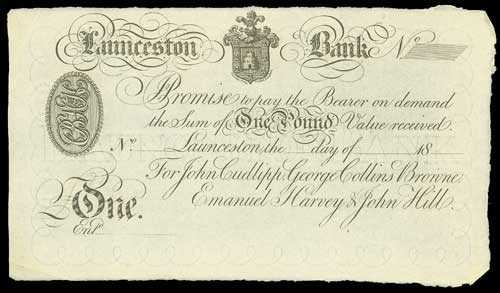 Launceston Bank No
I Promise to pay the Bearer on demand
the Sum of One Pound Value received.
No. Launceston the day of 18
For John Cudlipp, George Collins Browne
Emanuel Harvey & John Hill.
One.
Entd.